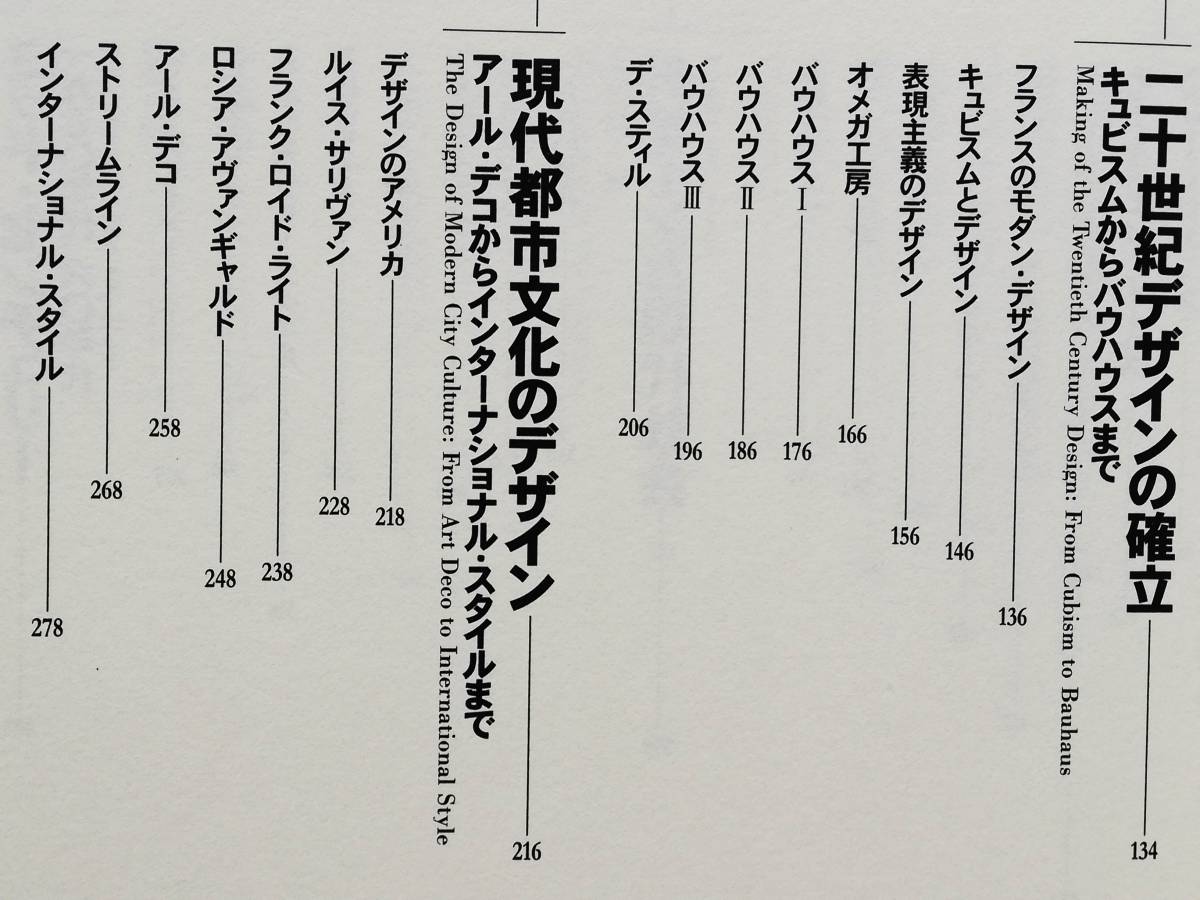 二十世紀デザインの確立 134
キュビスムからバウハウスまで
Making of the Twentieth Century Design: From Cubism to Bauhaus
フランスのモダン・デザイン 136
キュビスムとデザイン 146
表現主義のデザイン 156
オメガ工房 166
バウハウスⅠ 176
バウハウスⅡ 186
バウハウスⅢ 196
デ・スティル 206
現代都市文化のデザイン 216
アール・デコからインターナショナル・スタイルまで
The Design of Modern City Culture: From Art Deco to International Style
デザインのアメリカ 218
ルイス・サリヴァン 228
フランク・ロイド・ライト 238
ロシア・アヴァンギャルド 248
アール・デコ 258
ストリームライン 268
インターナショナル・スタイル 278